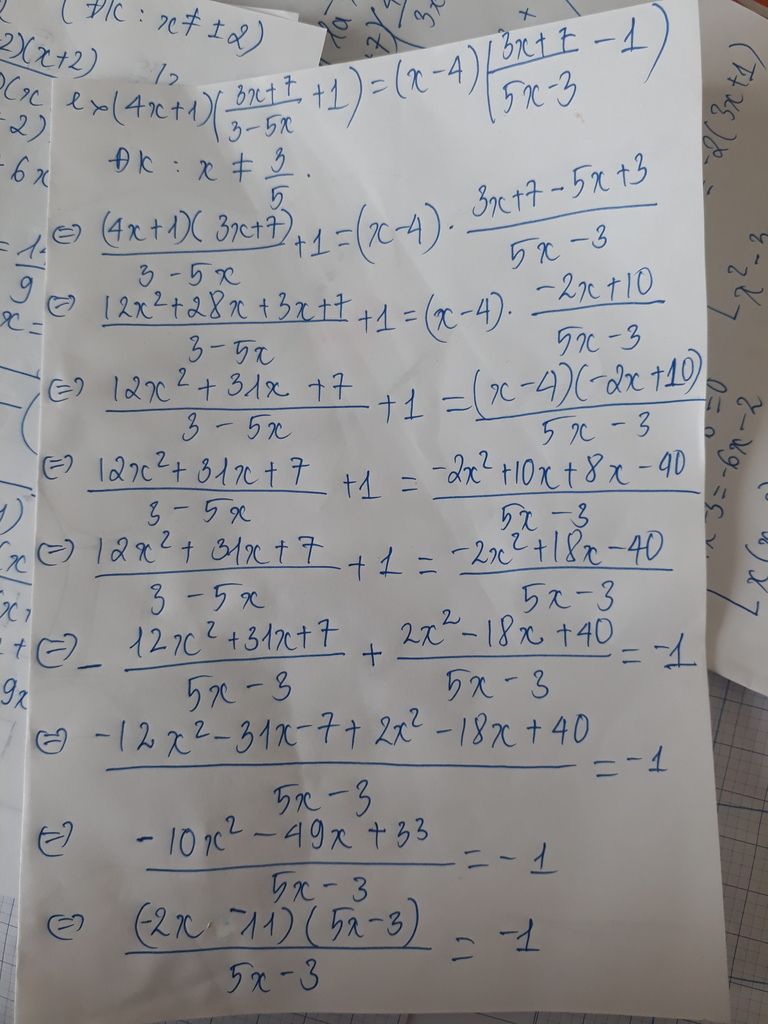 (ĐK : x ≠ ±2)
2)(x+2)
(4x+1)(\frac{3x+7}{3-5x} +1) = (x-4)(\frac{3x+7}{5x-3} -1)
ĐK : x ≠ \frac{3}{5}.
⇔ \frac{(4x+1)(3x+7)}{3-5x} +1 = (x-4) · \frac{3x+7-5x+3}{5x-3}
⇔ \frac{12x²+28x+3x+7}{3-5x} +1 = (x-4) · \frac{-2x+10}{5x-3}
⇔ \frac{12x²+31x+7}{3-5x} +1 = \frac{(x-4)(-2x+10)}{5x-3}
⇔ \frac{12x²+31x+7}{3-5x} +1 = \frac{-2x²+10x+8x-40}{5x-3}
⇔ \frac{12x²+31x+7}{3-5x} +1 = \frac{-2x²+18x-40}{5x-3}
⇔ -\frac{12x²+31x+7}{5x-3} + \frac{2x²-18x+40}{5x-3} = -1
⇔ \frac{-12x²-31x-7+2x²-18x+40}{5x-3} = -1
⇔ \frac{-10x²-49x+33}{5x-3} = -1
⇔ \frac{(-2x-11)(5x-3)}{5x-3} = -1
-2(3x+1)
x²-3
-3=-6x-2